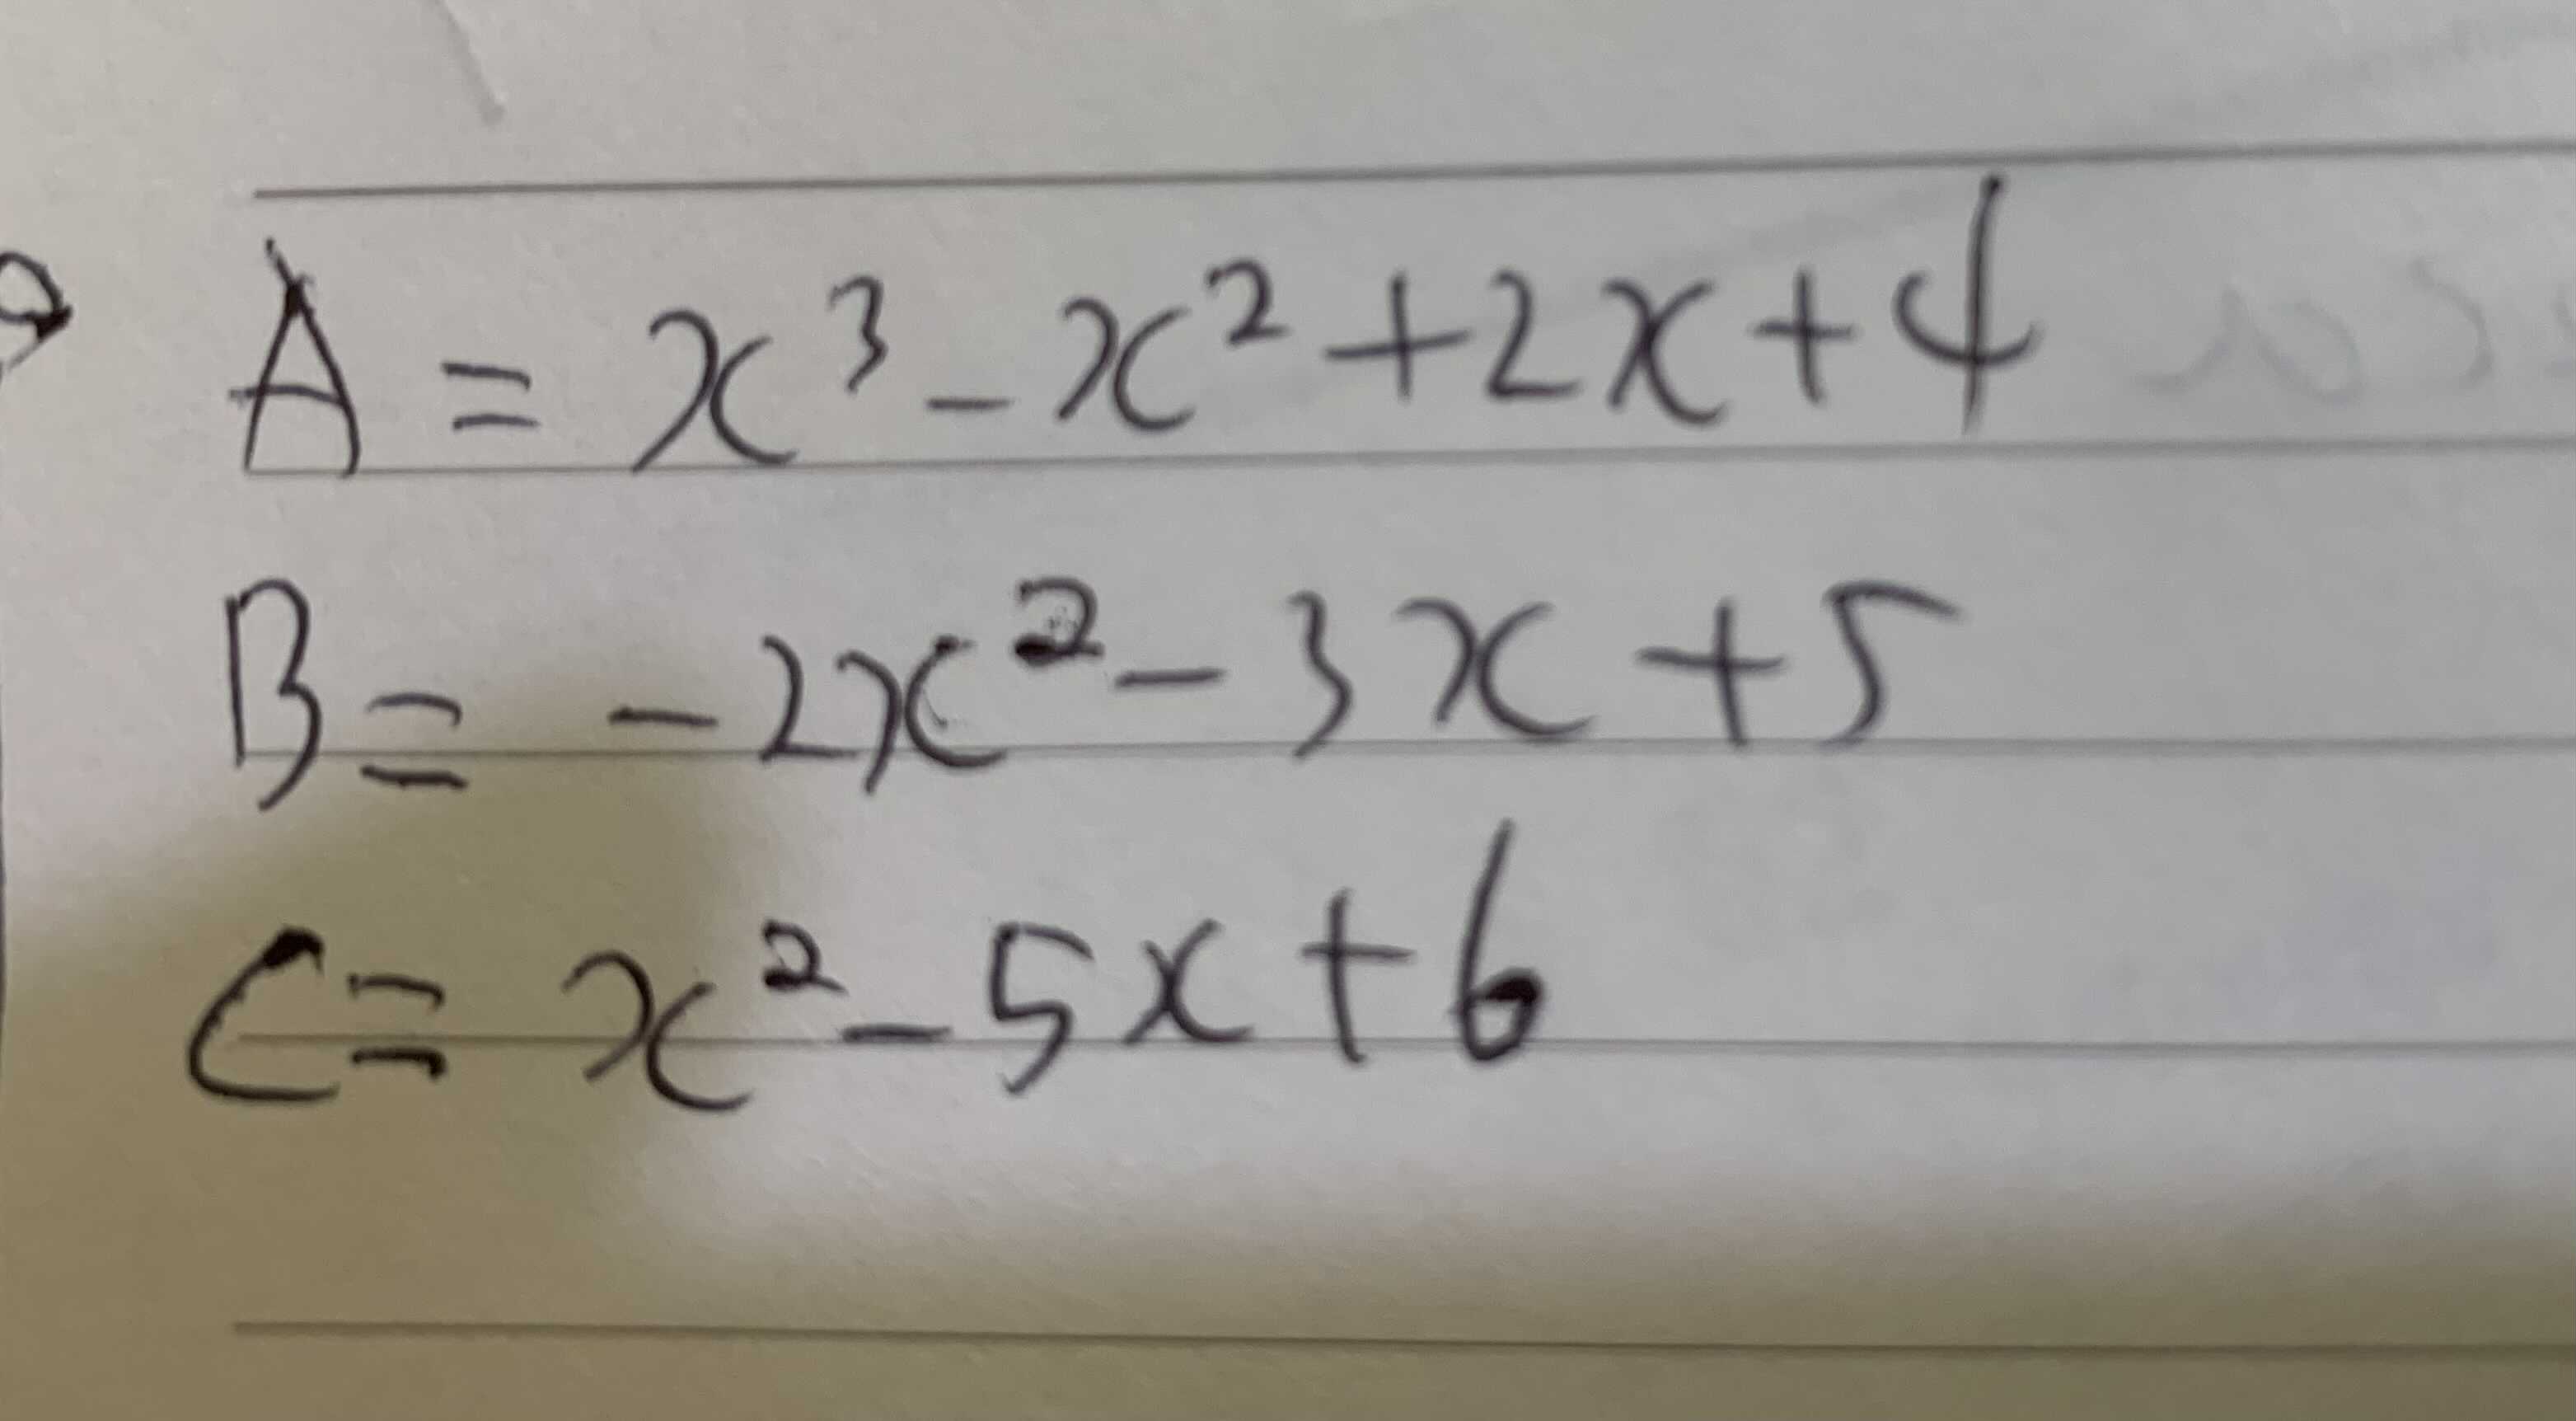 A = x³ - x² + 2x + 4
B = - 2x² - 3x + 5
C = x² - 5x + 6